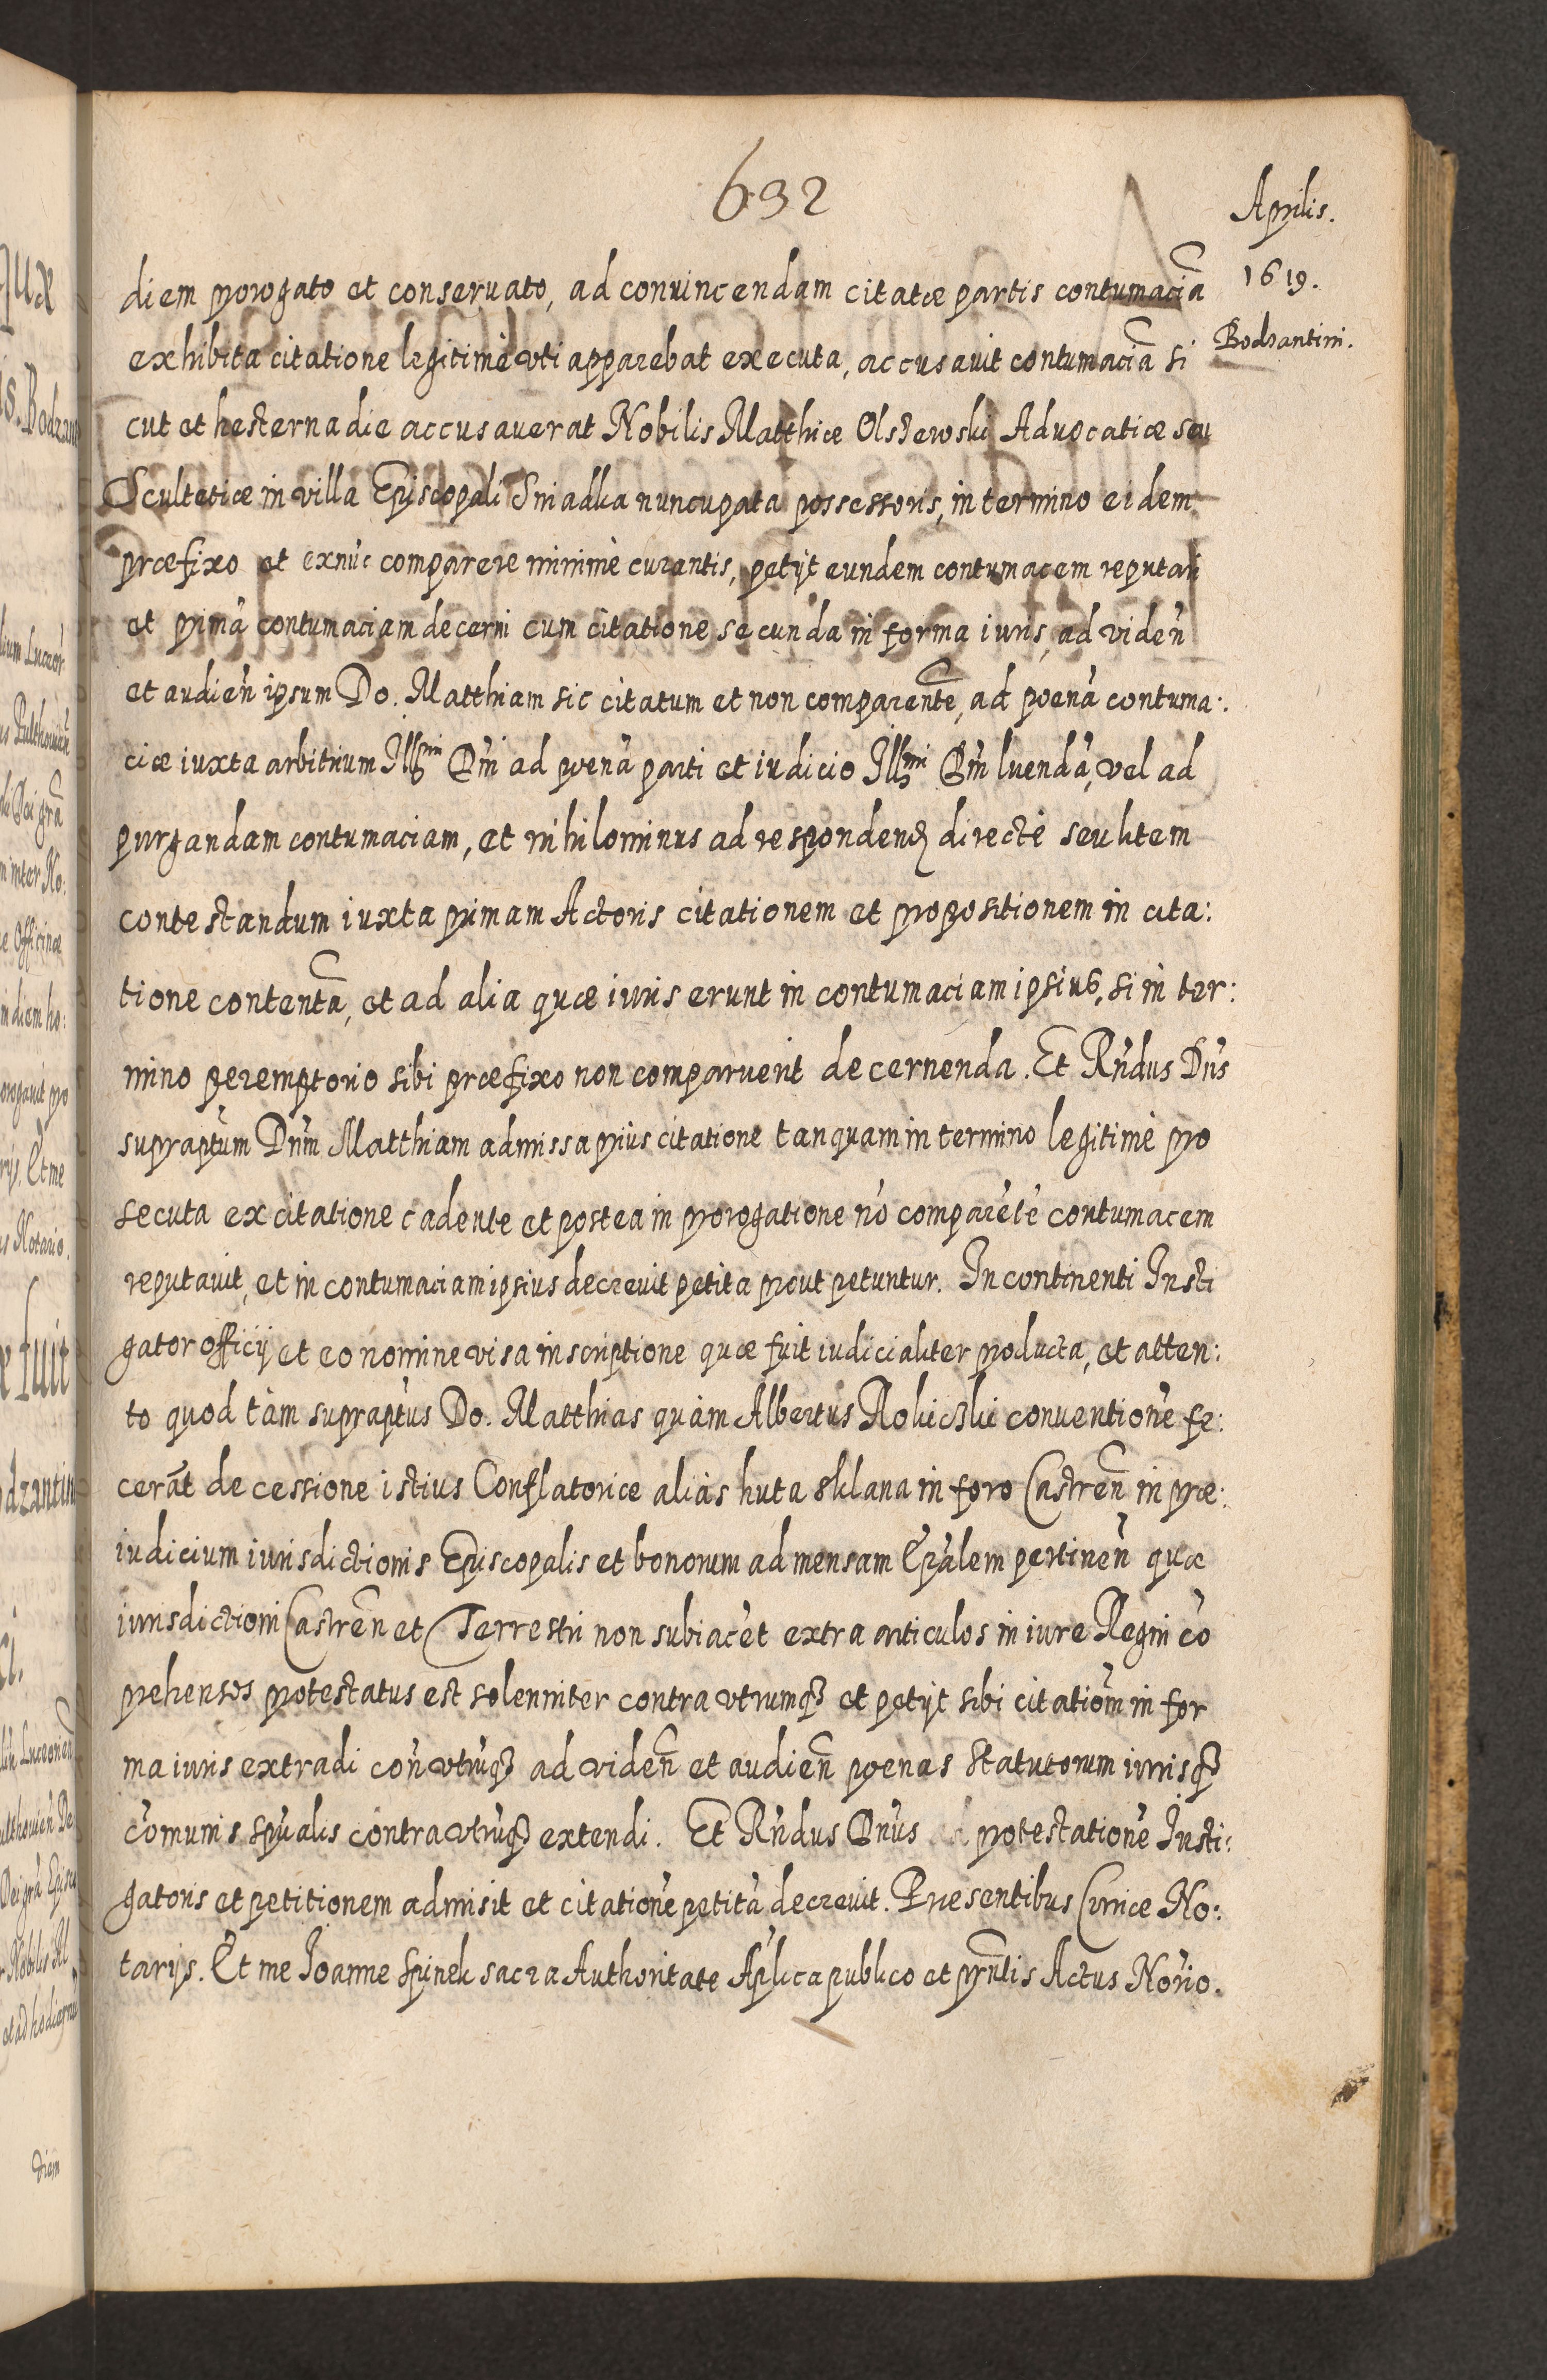 692
Aprilis.
1619.
Bodzantini.
diem prorogato et conseruato, ad conuincendam citatæ partis contumaciã
exhibita citatione legitimè vti apparebat executa, accusauit contumaciã si
cut et hesterna die accusauerat Nobilis Matthiæ Olszewski Aduocatiæ seu
Scultetiæ in villa Episcopali Sniadka nuncupata possessoris, in termino eidem
præfixo et exnũc comparere minimè curantis, petijt eundem contumacem reputari
et primã contumaciam decerni cum citatione secunda in forma iuris, ad viden̄
et audien̄ ipsum Do. Matthiam sic citatum et non comparentẽ, ad poenã contuma:
ciæ iuxta arbitrium Illmi Dn̄i ad poenã parti et iudicio Illmi Dn̄i luendã, vel ad
purgandam contumaciam, et nihilominus ad respondend directè seu litem
contestandum iuxta primam Actoris citationem et propositionem in cita:
tione contentã, et ad alia quæ iuris erunt in contumaciam ipsius, si in ter:
mino peremptorio sibi præfixo non comparuerit decernenda. Et Rn̄dus Dn̄s
supraptum Dn̄m Matthiam admissa prius citatione tanquam in termino legitimè pro
secuta ex citatione cadente et postea in prorogatione nõ comparẽtẽ contumacem
reputauit, et in contumaciam ipsius decreuit petita prout petuntur. In continenti Insti
gator officij et eo nomine visa inscriptione quæ fuit iudicialiter producta, et atten:
to quod tàm supraptus Do. Matthias quàm Albertus Rokiczki conuentionẽ fe:
cerãt de cessione istius Conflatoriæ aliàs huta sklana in foro Castren̄ in præ:
iudicium iurisdictionis Episcopalis et bonorum ad mensam Ep̄alem pertinen̄ quæ
iurisdictioni Castren̄ et Terrestri non subiacẽt extra articulos in iure Regni cõ
prehensos protestatus est solenniter contra vtrumq3 et petijt sibi citatiom̄ in for
ma iuris extradi con̄ vtrũq3 ad viden̄ et audien̄ poenas statutorum iurisq3
cõmunis spũalis contra vtrũq3 extendi. Et Rn̄dus Dn̄us protestationẽ Insti:
gatoris et petitionem admisit et citationẽ petitã decreuit. Præsentibus Curiæ No:
tarijs. Et me Joanne Spinek sacra Authoritate Aplica publico et prn̄tis Actus Nõrio.